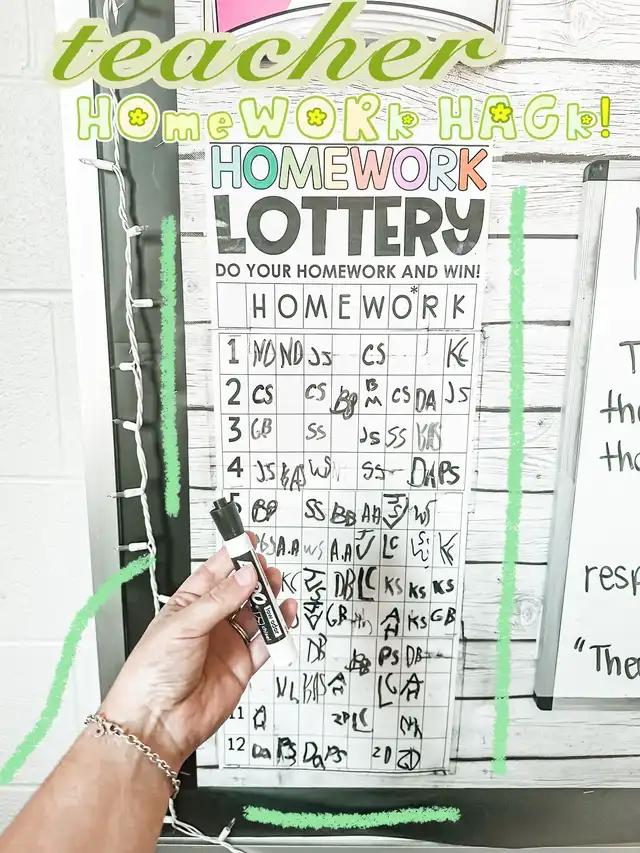 teacher
HOmeWORk HACk!
HOMEWORK
LOTTERY
DO YOUR HOMEWORK AND WIN!
H O M E W O* R K
1 ND ND JS CS KC
2 CS CS BB BM CS DA JS
3 GB SS JS SS KAS
4 JS KAS WS SS DA PS
5 BB SS BB AA JSV WS
A.A WS A.A JV LC KC
KC JSV DB LC KS KS KS
GB AH KS GB
DB BB PS DB
NL KAS AH LC AH
11 A 2D LC
12 Da PS Da PS 2D
T
the
tho
resp
"The